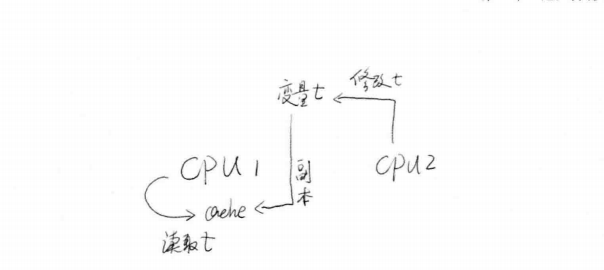 变量t
修改t
CPU 1
副本
CPU2
cache
读取t